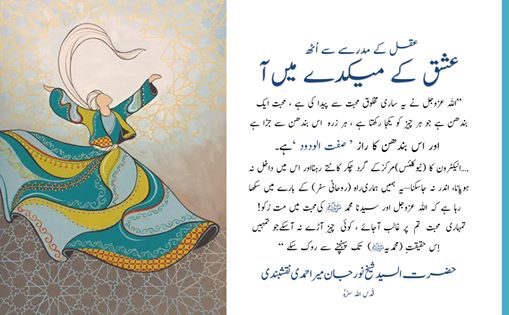 عقل کے مدرسے سے اُٹھ
عشق کے میکدے میں آ
”اللہ عزوجل نے یہ ساری مخلوق محبت سے پیدا کی ہے ، محبت ایک
بندھن ہے جو ہر چیز کو یکجا رکھتا ہے ، ہر زرہ اس بندھن سے جڑا ہے
اور اس بندھن کا راز ’ صفت الودود ‘ ہے۔
...الیکٹرون کا (نیوکلئس) مرکز کے گرد چکر کاٹتے رہنا اور اس میں داخل نہ
ہوپانا، اندر نہ جاسکنا۔یہ ہمیں ہماری راہ (روحانی سفر) کے بارے میں سکھا
رہا ہے کہ اللہ عزوجل اور سیدنا محمد ﷺ کی محبت میں مت رکو!
تمہاری محبت تم پر غالب آجائے ، کوئی چیز آڑے نہ آسکے جو تمہیں
اِس حقیقتِ (محمدیہ ﷺ) تک پہنچنے سے روک سکے “
حضرت السید شیخ نور جان میر احمدی نقشبندی
قدس اللہ سرہٗ